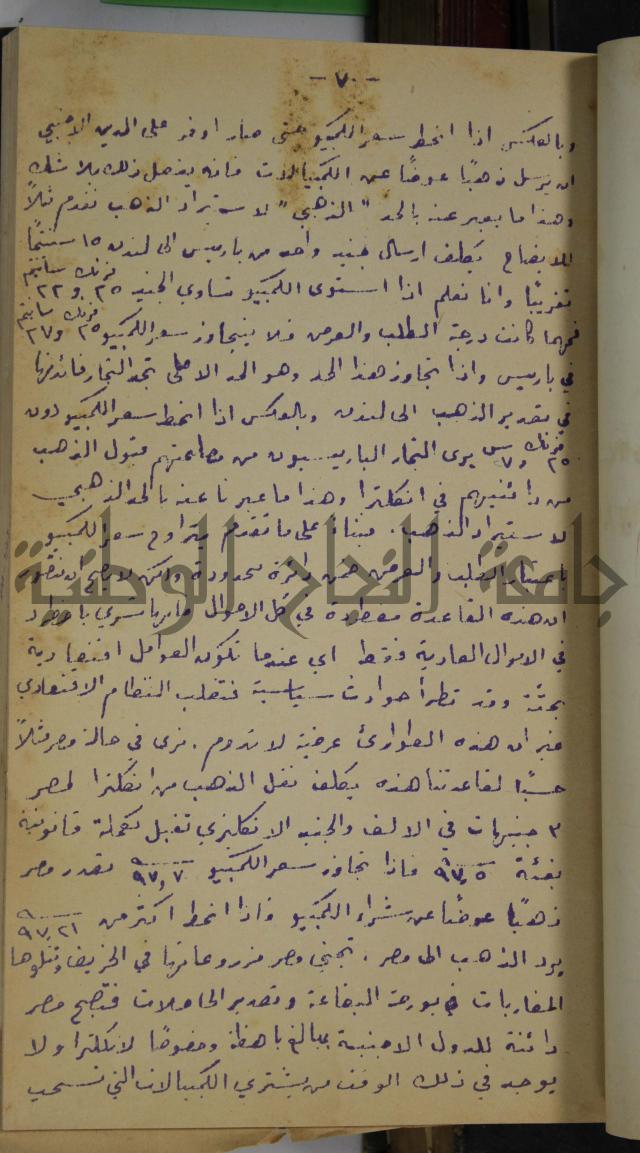 - ٧٠ -
وبالعكس اذا انحط سعر الكمبيو حتى صار اوفر على المدين الاجنبي
ان يرسل ذهبًا عوضًا عن الكمبيالات فانه يفضل ذلك بلا شك
وهذا ما يعبر عنه بالحد "الذهبي" لاستيراد الذهب نقدم مثلاً
للايضاح يكلف ارسال جنيه واحد من باريس الى لندن ١٥ سنتيمًا
تقريبًا وانا نعلم اذا استوى الكمبيو تساوي الجنيه ٢٥ فرنك و ٢٢ سانتيم
فمهما كانت درجة الطلب والعرض فلا يتجاوز سعر الكمبيو ٢٥ فرنك و ٣٧ سانتيم
في باريس واذا تجاوز هذا الحد وهو الحد الاعلى تجد التجار فائدتها
في تصدير الذهب الى لندن وبالعكس اذا انحط سعر الكمبيو دون
٢٥ فرنك و ٧ س يرى التجار الباريسيون من مصلحتهم قبول الذهب
من دائنيهم في انكلترا وهذا ما عبرنا عنه بالحد الذهبي
لاستيراد الذهب. فبناءً على ما تقدم يتراوح سعر الكمبيو
باعتبار الطلب والعرض ضمن دائرة محدودة ولكن لا يصح ان نتصور
ان هذه القاعدة مطردة في كل الاحوال فانها تسري باطراد
في الاحوال العادية فقط اي عندما تكون العوامل اقتصادية
بحتة وقد تطرأ حوادث سياسية فتقلب النظام الاقتصادي
غير ان هذه الطوارئ عرضية لا تدوم. نرى في حالة مصر مثلاً
حسب قاعدتنا هذه يكلف نقل الذهب من انكلترا لمصر
٣ جنيهات في الالف والجنيه الانكليزي تقبل كعملة قانونية
بفئة ٩٧,٥ فاذا تجاوز سعر الكمبيو ٩٧,٧ تصدر مصر
ذهبًا عوضًا عن شراء الكمبيو واذا انحط اكثر من ٩٧,٢١
يرد الذهب الى مصر. تجني مصر مزروعاتها في الخريف وتتلوها
المضاربات في بورصة البضاعة وتصدير الحاصلات فتصبح مصر
دائنة للدول الاجنبية بمبالغ باهظة وخصوصًا لانكلترا ولا
يوجد في ذلك الوقت من يشتري الكمبيالات التي تسحب
جامعة النجاح الوطنية